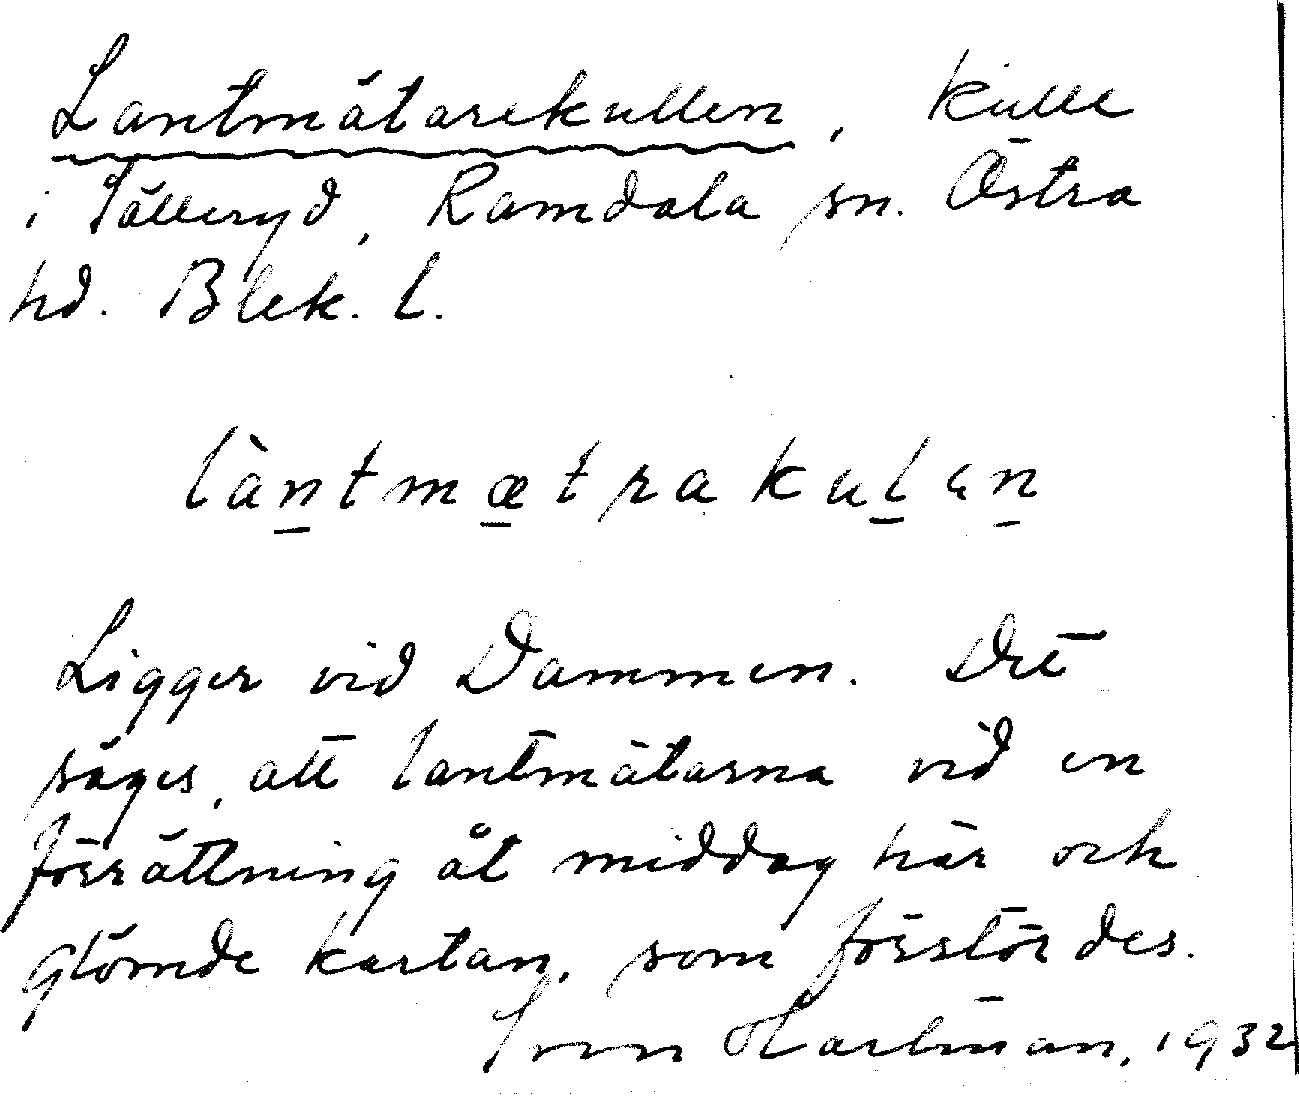 Lantmätarekullen, kulle
i Tålleryd, Ramdala sn. Östra
hd. Blek. l.
làn̲tmæ̲trakul̲ən̲
Ligger vid Dammen. Det
säges, att lantmätarna vid en
förrättning åt middag här och
glömde kartan, som förstördes.
Hartman, 1932